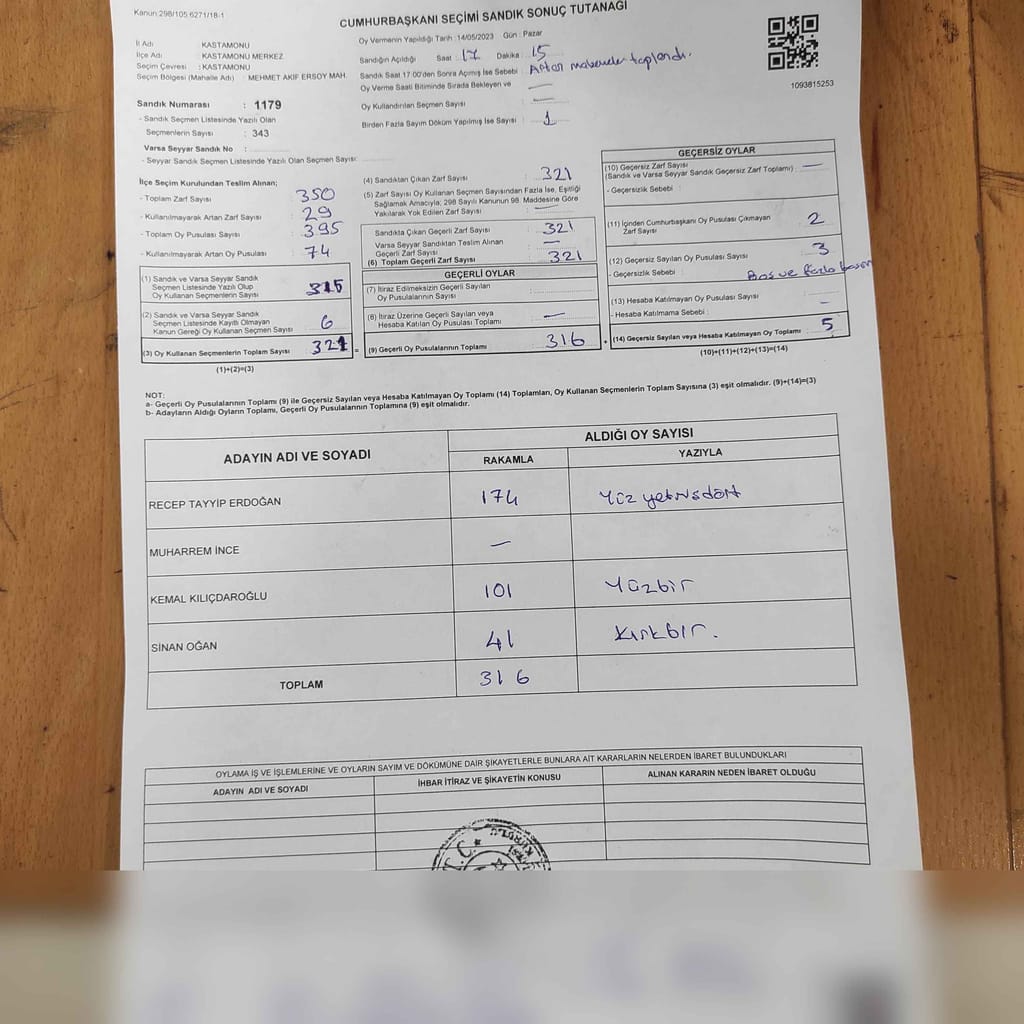 Kanun 298/105 6271/18-1
CUMHURBAŞKANI SEÇİMİ SANDIK SONUÇ TUTANAĞI
Oy Vermenin Yapıldığı Tarih : 14/05/2023 Gün : Pazar
İl Adı : KASTAMONU
İlçe Adı : KASTAMONU MERKEZ
Seçim Çevresi : KASTAMONU
Seçim Bölgesi (Mahalle Adı) : MEHMET AKIF ERSOY MAH.
Sandığın Açıldığı Saat : 17 Dakika : 15
Sandık Saat 17:00'den Sonra Açılmış İse Sebebi : Artan malzemeler toplandı.
Oy Verme Saati Bitiminde Sırada Bekleyen ve
Oy Kullandırılan Seçmen Sayısı : —
Birden Fazla Sayım Döküm Yapılmış İse Sayısı : 1
1093815253
Sandık Numarası : 1179
- Sandık Seçmen Listesinde Yazılı Olan
Seçmenlerin Sayısı : 343
Varsa Seyyar Sandık No :
- Seyyar Sandık Seçmen Listesinde Yazılı Olan Seçmen Sayısı:
İlçe Seçim Kurulundan Teslim Alınan;
- Toplam Zarf Sayısı : 350
- Kullanılmayarak Artan Zarf Sayısı : 29
- Toplam Oy Pusulası Sayısı : 395
- Kullanılmayarak Artan Oy Pusulası : 74
(1) Sandık ve Varsa Seyyar Sandık
Seçmen Listesinde Yazılı Olup
Oy Kullanan Seçmenlerin Sayısı : 315
(2) Sandık ve Varsa Seyyar Sandık
Seçmen Listesinde Kayıtlı Olmayan
Kanun Gereği Oy Kullanan Seçmen Sayısı : 6
(3) Oy Kullanan Seçmenlerin Toplam Sayısı : 321 =
(1)+(2)=(3)
(4) Sandıktan Çıkan Zarf Sayısı : 321
(5) Zarf Sayısı Oy Kullanan Seçmen Sayısından Fazla İse, Eşitliği
Sağlamak Amacıyla; 298 Sayılı Kanunun 98. Maddesine Göre
Yakılarak Yok Edilen Zarf Sayısı : —
Sandıkta Çıkan Geçerli Zarf Sayısı : 321
Varsa Seyyar Sandıktan Teslim Alınan
Geçerli Zarf Sayısı : —
(6) Toplam Geçerli Zarf Sayısı : 321
GEÇERLİ OYLAR
(7) İtiraz Edilmeksizin Geçerli Sayılan
Oy Pusulalarının Sayısı :
(8) İtiraz Üzerine Geçerli Sayılan veya
Hesaba Katılan Oy Pusulası Toplamı : —
(9) Geçerli Oy Pusulalarının Toplamı : 316 +
GEÇERSİZ OYLAR
(10) Geçersiz Zarf Sayısı
(Sandık ve Varsa Seyyar Sandık Geçersiz Zarf Toplamı) : —
- Geçersizlik Sebebi :
(11) İçinden Cumhurbaşkanı Oy Pusulası Çıkmayan
Zarf Sayısı : 2
(12) Geçersiz Sayılan Oy Pusulası Sayısı : 3
- Geçersizlik Sebebi : Boş ve fazla
(13) Hesaba Katılmayan Oy Pusulası Sayısı : —
- Hesaba Katılmama Sebebi :
(14) Geçersiz Sayılan veya Hesaba Katılmayan Oy Toplamı : 5
(10)+(11)+(12)+(13)=(14)
NOT:
a- Geçerli Oy Pusulalarının Toplamı (9) ile Geçersiz Sayılan veya Hesaba Katılmayan Oy Toplamı (14) Toplamları, Oy Kullanan Seçmenlerin Toplam Sayısına (3) eşit olmalıdır. (9)+(14)=(3)
b- Adayların Aldığı Oyların Toplamı, Geçerli Oy Pusulalarının Toplamına (9) eşit olmalıdır.
ADAYIN ADI VE SOYADI
ALDIĞI OY SAYISI
RAKAMLA YAZIYLA
RECEP TAYYİP ERDOĞAN 174 Yüz yetmişdört
MUHARREM İNCE —
KEMAL KILIÇDAROĞLU 101 Yüzbir
SİNAN OĞAN 41 Kırkbir.
TOPLAM 316
OYLAMA İŞ VE İŞLEMLERİNE VE OYLARIN SAYIM VE DÖKÜMÜNE DAİR ŞİKAYETLERLE BUNLARA AİT KARARLARIN NELERDEN İBARET BULUNDUKLARI
ADAYIN ADI VE SOYADI İHBAR İTİRAZ VE ŞİKAYETİN KONUSU ALINAN KARARIN NEDEN İBARET OLDUĞU
T.C.